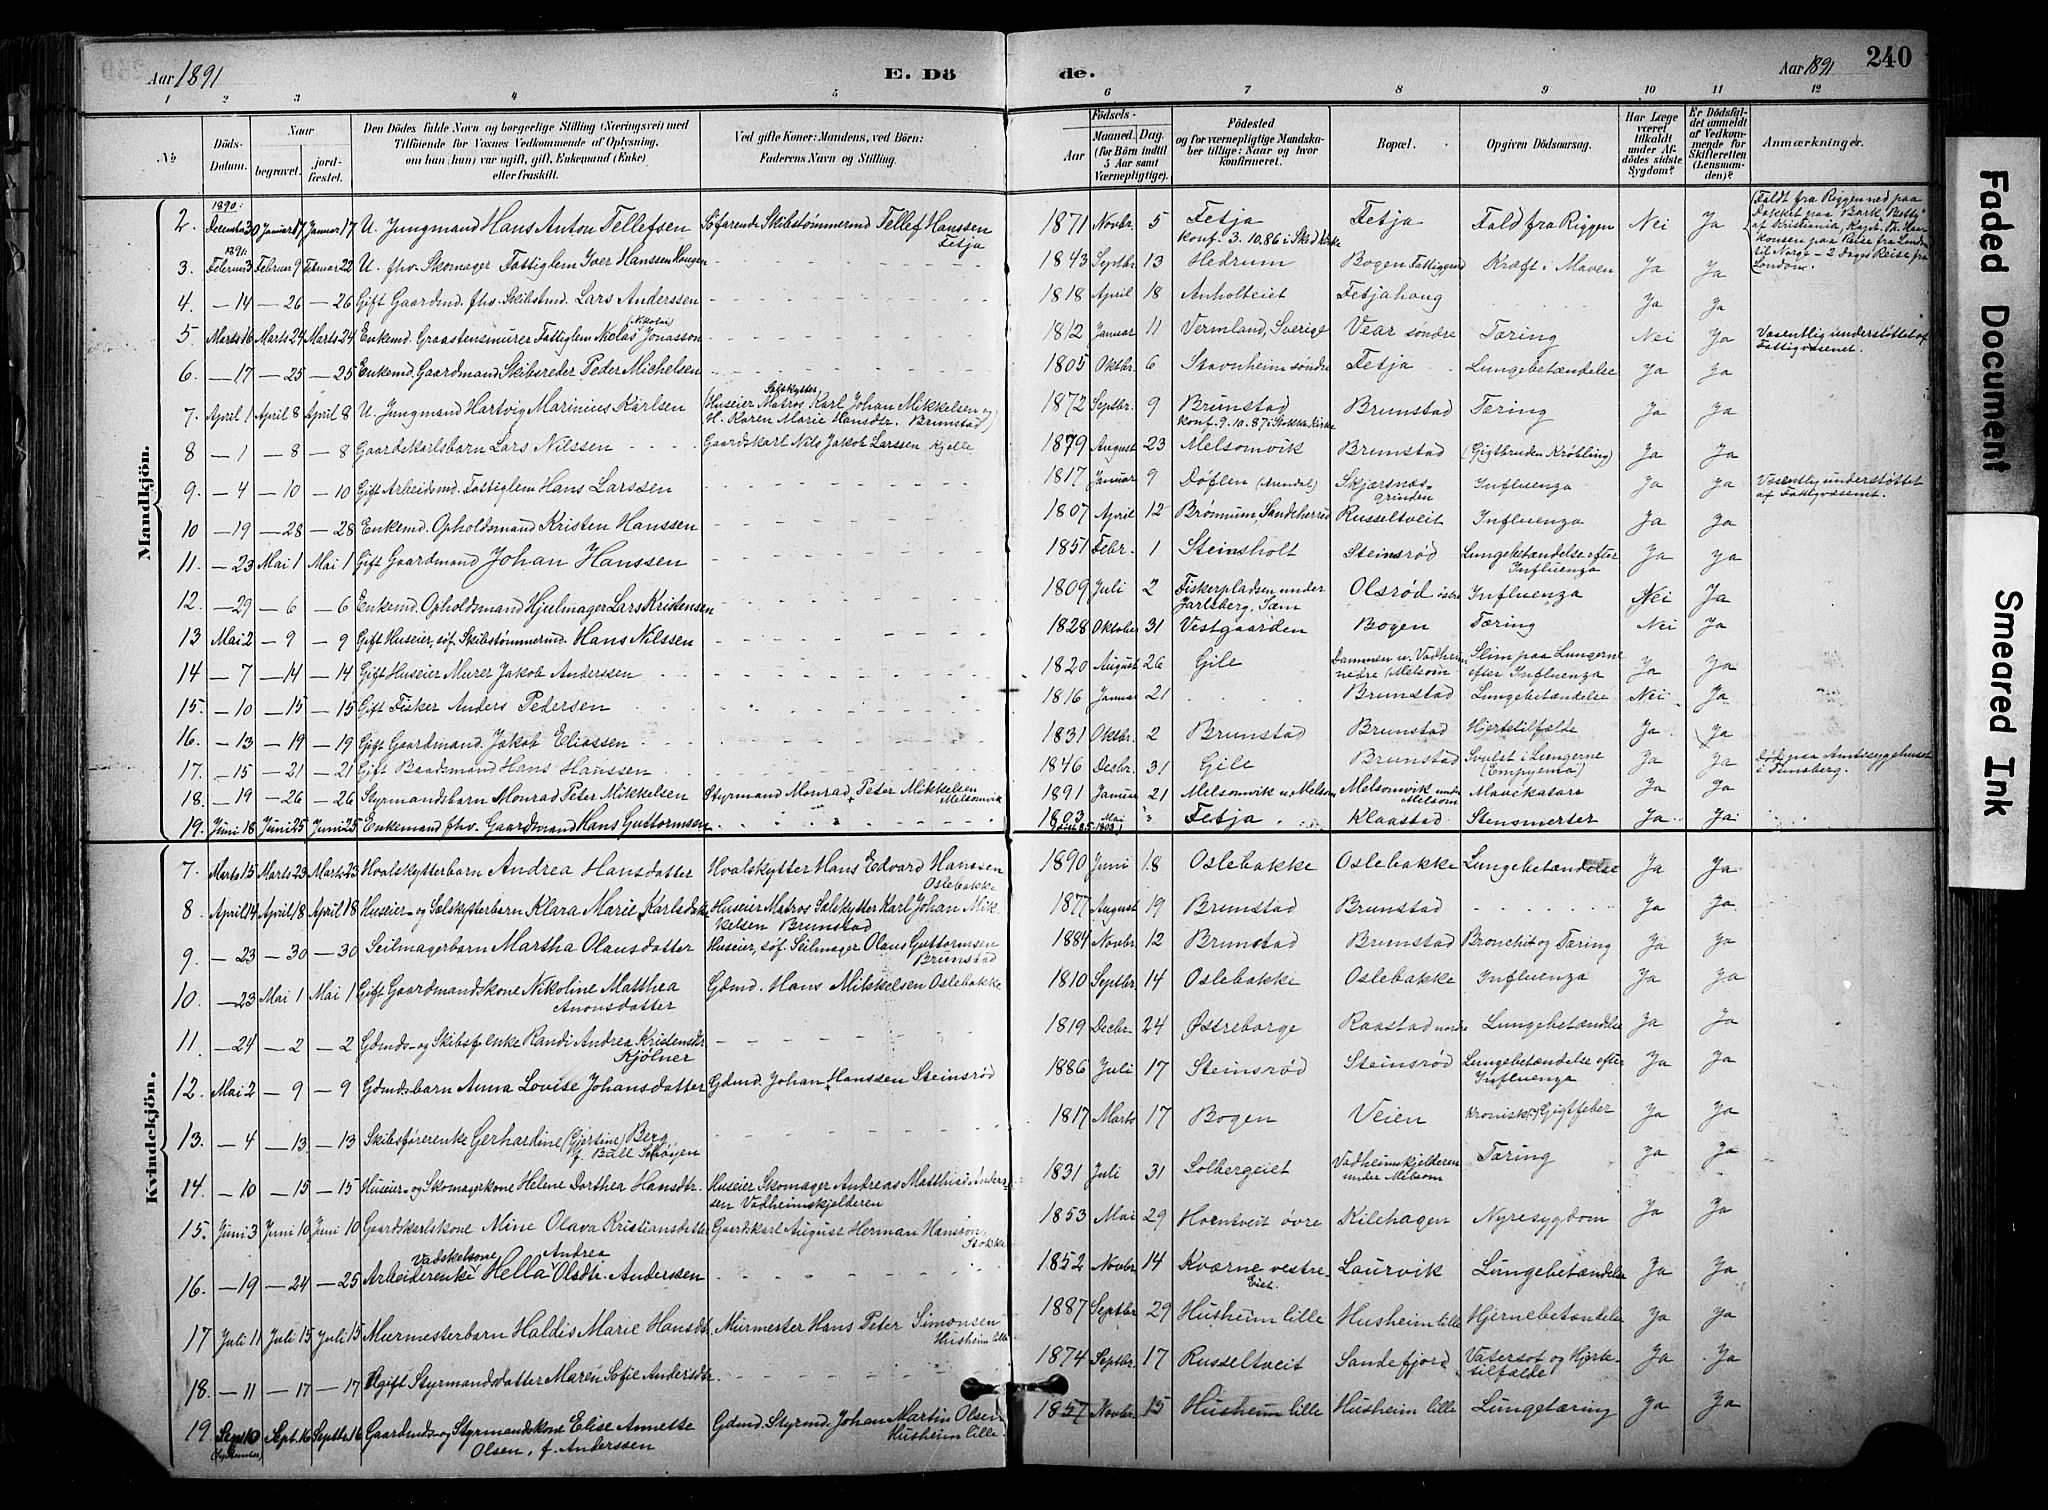 Aar 1891
E. Dö
de.
Aar 1891
240
1 2 3 4 5 6 7 8 9 10 11 12
No
Döds-Datum.
Naar
begravet.
jord-fæstet.
Den Dödes fulde Navn og borgerlige Stilling (Næringsvei) med
Tilföiende for Voxnes Vedkommende af Oplysning,
om han (hun) var ugift, gift, Enkemand (Enke)
eller fraskilt.
Ved gifte Koner: Mandens, ved Börn:
Faderens Navn og Stilling.
Födsels-
Aar
Maaned. Dag.
(for Börn indtil
5 Aar samt
Værnepligtige).
Födested
og for værnepligtige Mandska-
ber tillige: Naar og hvor
konfirmeret.
Bopæl.
Opgiven Dödsaarsag.
Har Læge
været
tilkaldt
under Af-
dödes sidste
Sygdom?
Er Dödsfal-
det anmeldt
af Vedkom-
mende for
Skifteretten
(Lensman-
den)?
Anmærkninger.
Mandkjön.
1890:
2. Decembr 30 Januar 17 Januar 17 U. Jungmand Hans Anton Tellefsen Søfarende Skibstømmermd Tellef Hanssen Fetja 1871 Novbr. 5 Fetja konf. 3.10.86 i Sked Kirke Fetja Fald fra Riggen Nei Ja (Faldt fra Riggen ned paa Dækket paa Bark "Betty" af Kristiania, Kapt. M. Haakonsen paa Reise fra London til Norge - 2 Dages Reise fra London.
1891:
3. Februar 3 Februar 9 Februar 22 U. fhv. Skomager Fattiglem Iver Hanssen Haugen 1843 Septbr. 13 Hedrum Bogen Fattiggaard Kræft i Maven Ja Ja
4. — 14 — 26 — 26 Gift Gaardmd. fhv. Skibstmd. Lars Anderssen 1818 April 18 Anholteiet Fetjahaug Ja Ja
5. Marts 16 Marts 24 Marts 24 Enkemd. Graastensmurer Fattiglem Niclas (Nikolai) Jonasson 1812 Januar 11 Vermland, Sverige Vear søndre Tæring Nei Ja Væsentlig understøttet af Fattigvæsenet.
6. — 17 — 25 — 25 Enkemd. Gaardmand Skibsreder Peder Michelsen 1805 Oktbr. 6 Stavnheim søndre Fetja Lungebetændelse Ja Ja
7. April 1 April 8 April 8 U. Jungmand Hartvig Marinius Karlsen (Huseier Matros Sælskytter Karl Johan Mikkelsen og H. Karen Marie Hansdtr. Brunstad) 1872 Septbr. 9 Brunstad konf. 9.10.87 i Stokke Kirke Brunstad Tæring Ja Ja
8 — 1 — 8 — 8 Gaardskarlsbarn Lars Nilssen Gaardskarl Nils Jakob Larssen Kjelle 1879 August 23 Melsomvik Brunstad (Gigtbruden Krøbling) Ja Ja
9. — 4 — 10 — 10 Gift Arbeidsmd. Fattiglem Hans Larssen 1817 Januar 9 Døflen (Arendal) Skjærsnæsgrinden Influenza Ja Ja Væsentlig understøttet af Fattigvæsenet.
10 — 19 — 28 — 28 Enkemd. Opholdsmand Kristen Hanssen 1807 April 12 Bronnum, Sandeherred Russeltveit Influenza Ja Ja
11. — 23 Mai 1 Mai 1 Gift Gaardmand Johan Hanssen 1851 Febr. 1 Steinsholt Steinsrød Lungebetændelse efter Influenza Ja Ja
12. — 29 — 6 — 6 Enkemd. Opholdsmand Hjulmager Lars Kristensen 1809 Juli 2 Fiskerpladsen under Jarlsberg, Sæm Olsrød østre Influenza Nei Ja
13 Mai 2 — 9 — 9 Gift Huseier, søf. Skibstømmermd. Hans Nilssen 1828 Oktober 31 Vestgaarden Bogen Tæring Nei Ja
14 — 7 — 14 — 14 Gift Huseier Murer Jakob Anderssen 1820 August 26 Gile Dammen u. Vadheim nedre (Melsom) Slim paa Lungerne efter Influenza Ja Ja
15. — 10 — 15 — 15 Gift Fisker Anders Pedersen 1816 Januar 21 Brunstad Lungebetændelse Nei Ja
16. — 13 — 19 — 19 Gift Gaardmand Jakob Eliassen 1831 Oktbr. 2 Brunstad Brunstad Hjertetilfælde Ja Ja
17. — 15 — 21 — 21 Gift Baadsmand Hans Hanssen 1846 Decbr. 31 Gile Brunstad Svulst i Lungerne (Empyema) Ja Ja Død paa Amtssygehuset i Tunsberg.
18. — 19 — 26 — 26 Styrmandsbarn Monrad Peter Mikkelsen Styrmand Monrad Peter Mikkelsen Melsomvik 1891 Januar 21 Melsomvik u. Melsom Melsomvik under Melsom Mavekatarr Ja Ja
19. Juni 18 Juni 25 Juni 25 Enkemand fhv. Gaardmand Hans Guttormsen 1803 Mai Fetja Klaastad Stensmerter Ja Ja
Kvindekjön.
7. Marts 15 Marts 23 Marts 23 Hvalskytterbarn Andrea Hansdatter Hvalskytter Hans Edvard Hanssen Oslebakke 1890 Juni 18 Oslebakke Oslebakke Lungebetændelse Ja Ja
8. April 14 April 18 April 18 Huseier- og Sælskytterbarn Klara Marie Karlsdatter Huseier Matros Sælskytter Karl Johan Mikkelsen Brunstad 1877 August 19 Brunstad Brunstad Ja Ja
9. — 23 — 30 — 30 Seilmagerbarn Martha Olausdatter Huseier, søf. Seilmager Olaus Guttormsen Brunstad 1884 Novbr 12 Brunstad Brunstad Bronchit og Tæring Ja Ja
10. — 23 Mai 1 Mai 1 Gift Gaardmandskone Nikoline Matthea Anonsdatter Gdmd. Hans Mikkelsen Oslebakke 1810 Septbr 14 Oslebakke Oslebakke Influenza Ja Ja
11. — 24 — 2 — 2 Gdmds- og Skibsf.enke Randi Andrea Kristensdtr Kjølner 1819 Decbr. 24 Østreborge Raastad nordre Lungebetændelse Ja Ja
12. Mai 2 — 9 — 9 Gdmdsbarn Anna Lovise Johansdatter Gdmd. Johan Hanssen Steinsrød 1886 Juli 17 Steinsrød Steinsrød Lungebetændelse efter Influenza Ja Ja
13. — 4 — 13 — 13 Skibsførerenke Gerhardine (Gjersine) Berg f. Bull Schøyen 1817 Marts 17 Bogen Veien Kronisk(?) Gigtfeber Ja Ja
14. — 10 — 15 — 15 Huseier- og Skomagerkone Helene Dorthea Hansdtr. Huseier Skomager Andreas Matthias Anderssen Vadheimskjelderen 1831 Juli 31 Solbergeiet Vadheimskjelderen under Melsom Tæring Ja Ja
15. Juni 3 Juni 10 Juni 10 Gaardskarlskone Mine Olava Kristiansdatter Gaardskarl August Herman Hansson Stokke 1853 Mai 29 Horntveit øvre Kilehagen Nyresygdom Ja Ja
16. — 19 — 24 — 25 Arbeiderenke Vadskekone Hella Andrea Olsdtr. Anderssen 1852 Novbr 14 Kværne vestre Eiet Laurvik Lungebetændelse Ja Ja
17 Juli 11 Juli 15 Juli 15 Murmesterbarn Haldis Marie Hansdtr. Murmester Hans Peter Simonsen Husheim lille 1887 Septbr 29 Husheim lille Husheim lille Hjernebetændelse Ja Ja
18. — 11 — 17 — 17 Ugift Styrmandsdatter Maren Sofie Andersdtr. 1874 Septbr 17 Russeltveit Sandefjord Vatersot og Hjertetilfælde Ja Ja
19. Sept 10 (September) Sept. 16 Septbr 16 Gaardmds- og Styrmandskone Elise Annette Olsen, f. Anderssen Gdmd. Styrmd. Johan Martin Olsen Husheim lille. 1857 Novbr 15 Husheim lille Husheim lille Lungetæring Ja Ja
Faded Document
Smeared Ink